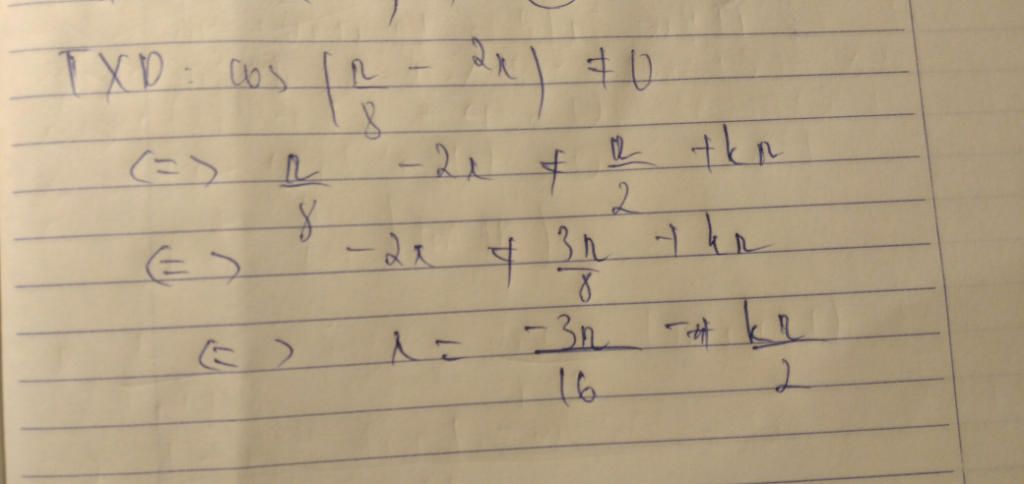 TXD: cos (π/8 - 2x) ≠ 0
<=> π/8 - 2x ≠ π/2 + kπ
<=> -2x ≠ 3π/8 + kπ
<=> x = -3π/16 - kπ/2